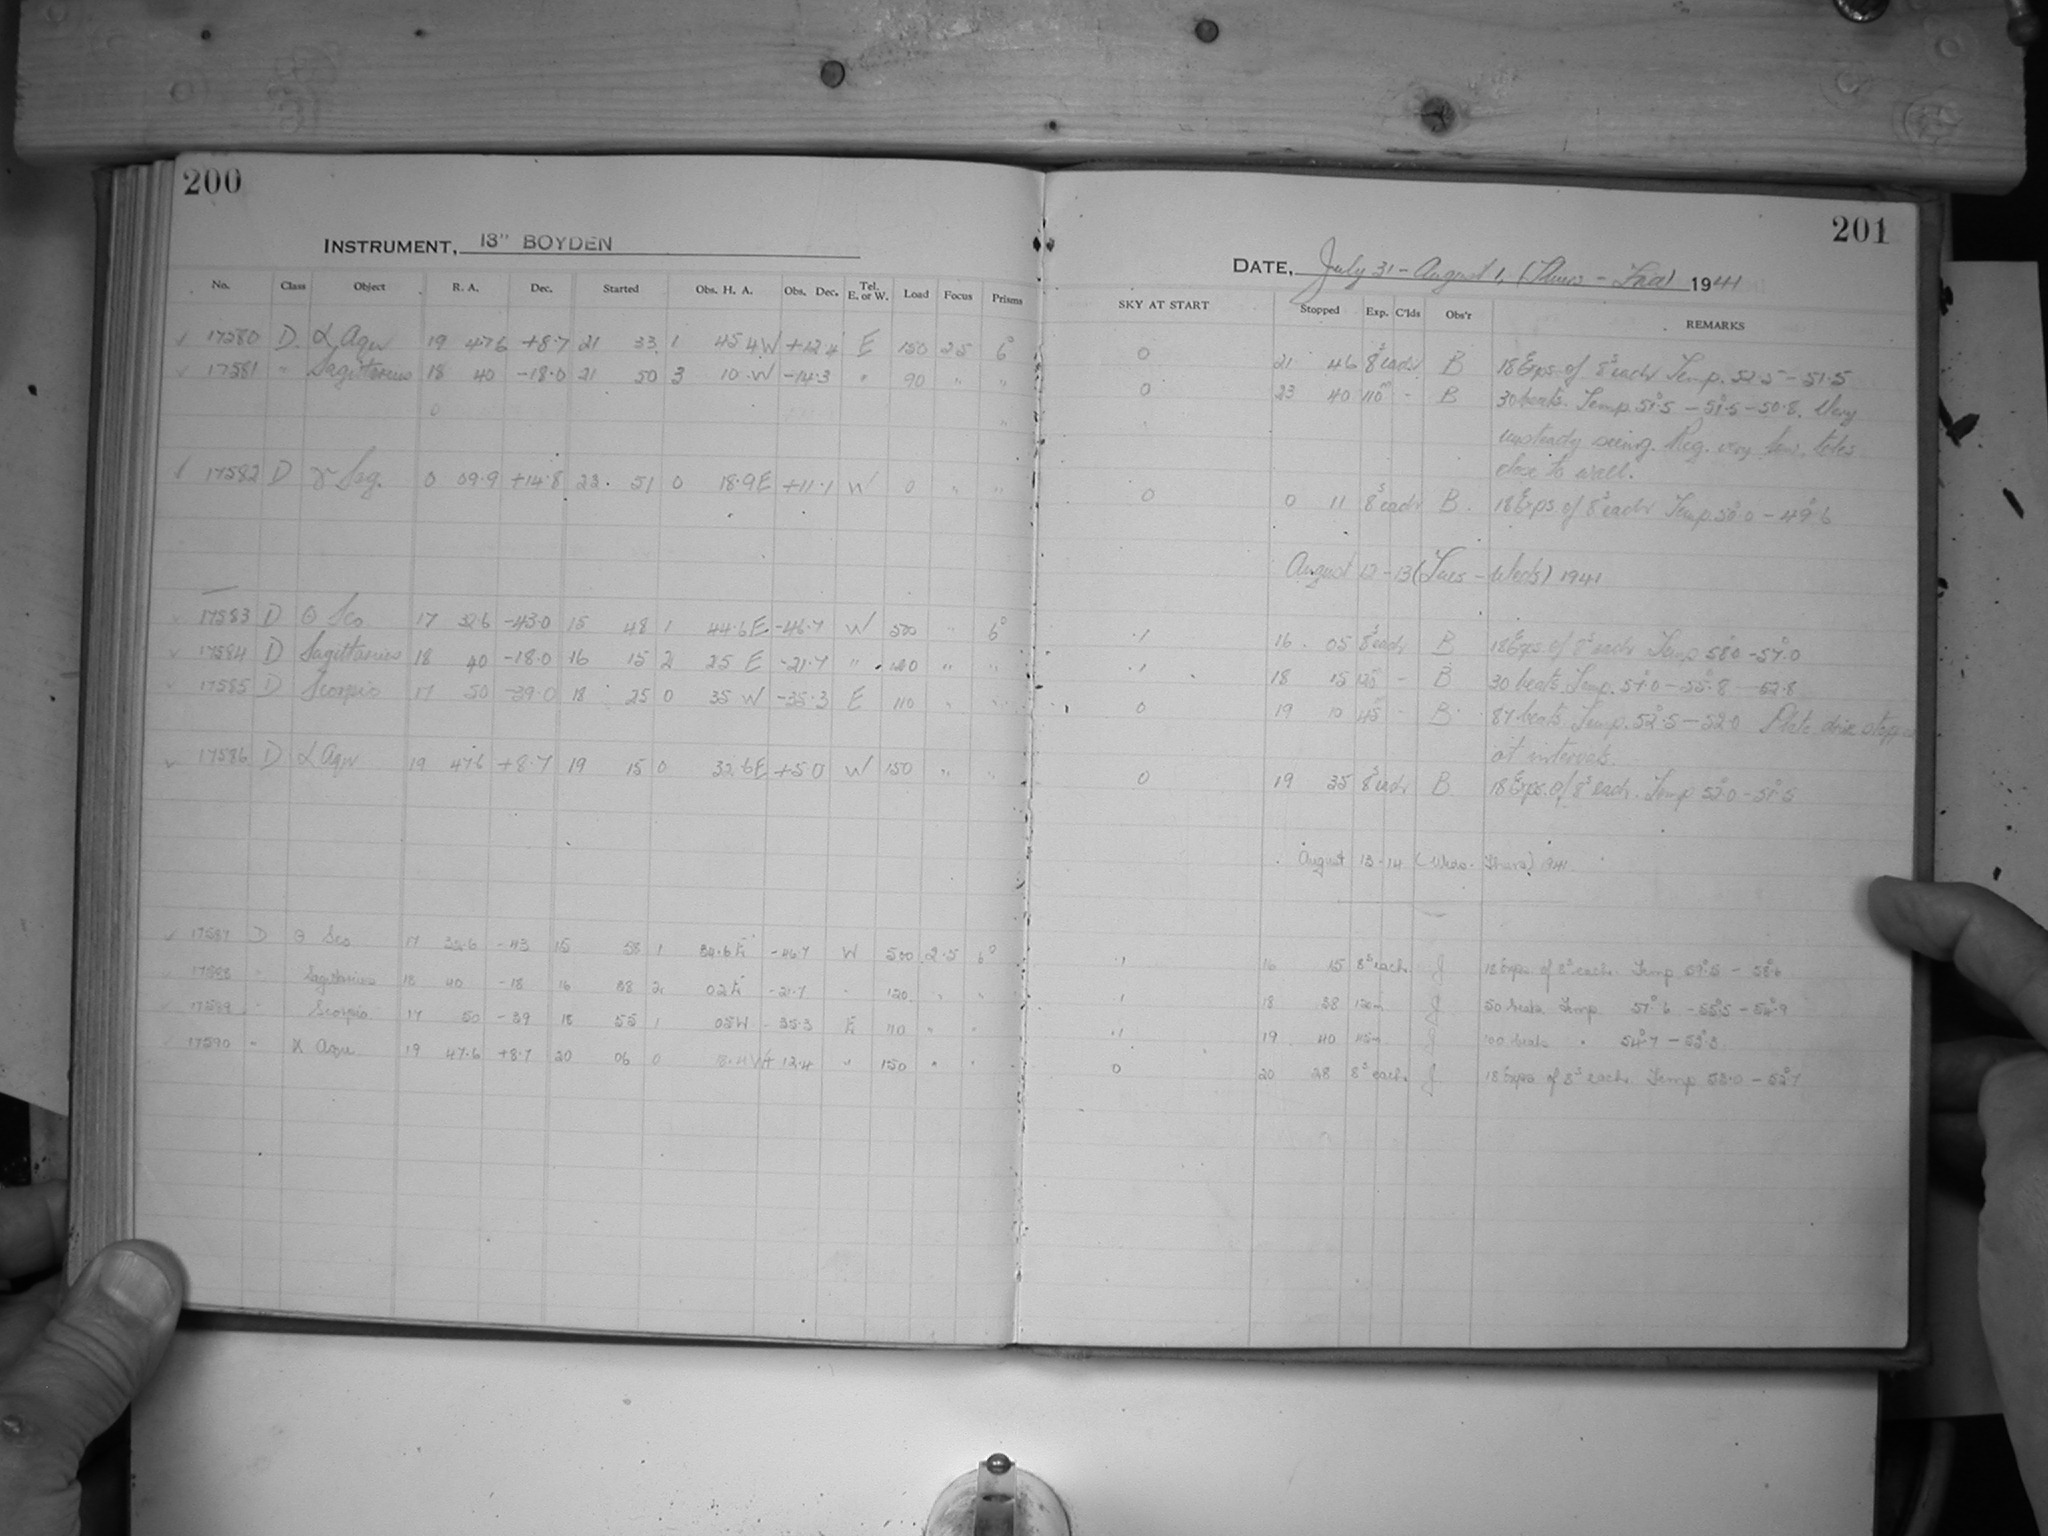 200
INSTRUMENT, 13" BOYDEN
No. Class Object R. A. Dec. Started Obs. H. A. Obs. Dec. Tel. E. or W. Load Focus Prisms
17580 D. α Aqu 19 47.6 +8.7 21 33 1 45.4W +12.4 E 150 2.5 6°
17581 " Sagittarius 18 40 -18.0 21 50 3 10 W -14.3 " 90 " "
17582 D γ 0 09.9 +14.8 23 51 0 18.9E +11.1 W 0 " "
17583 D θ Sco 17 32.6 -43.0 15 48 1 44.6E -46.7 W 500 " 6°
17584 D Sagittarius 18 40 -18.0 16 15 2 25 E -21.7 " 120 " "
17585 D Scorpio 17 50 -39.0 18 25 0 35 W -35.3 E 110 " "
17586 D α Aqu 19 47.6 +8.7 19 15 0 32.6E +5.0 W 150 " "
17587 D θ Sco 17 32.6 -43 15 58 1 34.6E -46.7 W 500 2.5 6°
17588 " Sagittarius 18 40 -18 16 38 2 02E -21.7 " 120 " "
17589 " Scorpio 17 50 -39 18 55 1 05W -35.3 E 110 " "
17590 " α Aqu 19 47.6 +8.7 20 06 0 18.4W +12.4 " 150 " "
201
DATE, July 31 - August 1, (Thurs - Frid) 1941
SKY AT START Stopped Exp. C'lds Obs'r REMARKS
0 21 46 8s each B 18 Exps. of 8s each Temp. 52.5 - 51.5
0 23 40 110m - B 30 beats. Temp. 51.5 - 51.5 - 50.8. Very
unsteady seeing. Reg. very low,
close to well.
0 0 11 8s each B. 18 Exps of 8s each Temp. 50.0 - 49.6
August 12 - 13 (Tues - Weds) 1941
.1 16 05 8s each B 18 Exps. of 8s each Temp 58.0 - 57.0
.1 18 15 125 - B 30 beats. Temp. 57.0 - 55.8 - 52.8
0 19 10 45 - B 87 beats. Temp. 52.5 - 52.0 Plate drive stopped
at intervals.
0 19 35 8s each B 18 Exps. of 8s each. Temp 52.0 - 51.5
August 13 - 14 (Weds - Thurs) 1941
.1 16 15 8s each J 18 Exps of 8s each. Temp 59.5 - 58.6
.1 18 38 120m J 50 beats Temp 57.6 - 55.5 - 54.9
.1 19 40 45m J 100 beats " 54.7 - 53.3
0 20 28 8s each. J 18 Exps of 8s each. Temp 53.0 - 52.7